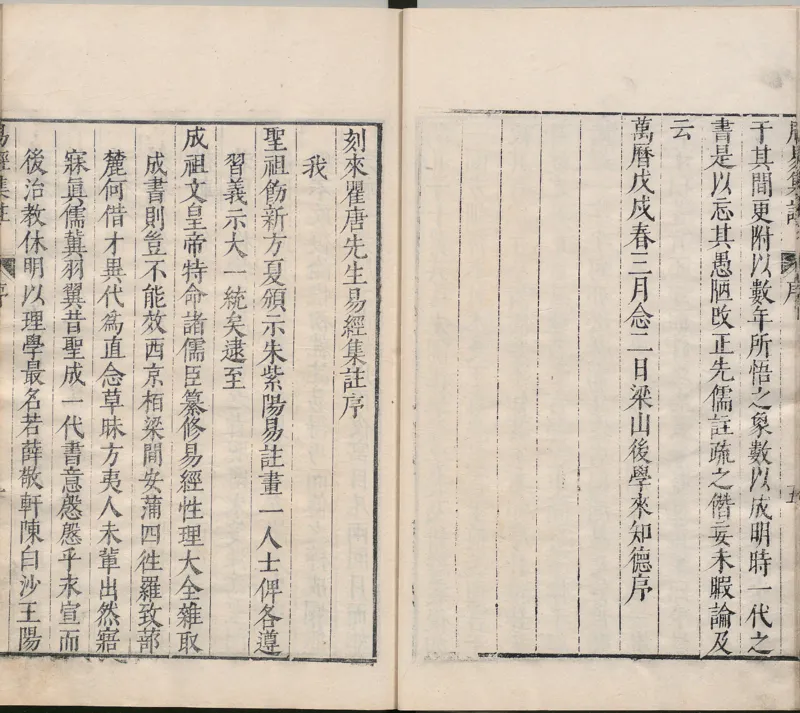 于其間更附以數年所悟之象數以成明時一代之
書是以忘其愚陋改正先儒註疏之僭妄未暇論及
云
萬曆戊戌春三月念二日梁山後學來知德序
刻來瞿唐先生易經集註序
我
聖祖飭新方夏頒示朱紫陽易註畫一人士俾各遵
習義示大一統矣逮至
成祖文皇帝特命諸儒臣纂修易經性理大全雜取
成書則豈不能效西京栢梁間安蒲四徃羅致蔀
麓何借才異代為直念草昧方夷人未輩出然寤
寐真儒冀羽翼昔聖成一代書意慇慇乎未宣而
後治教休明以理學最名若薛敬軒陳白沙王陽
易經集註 序